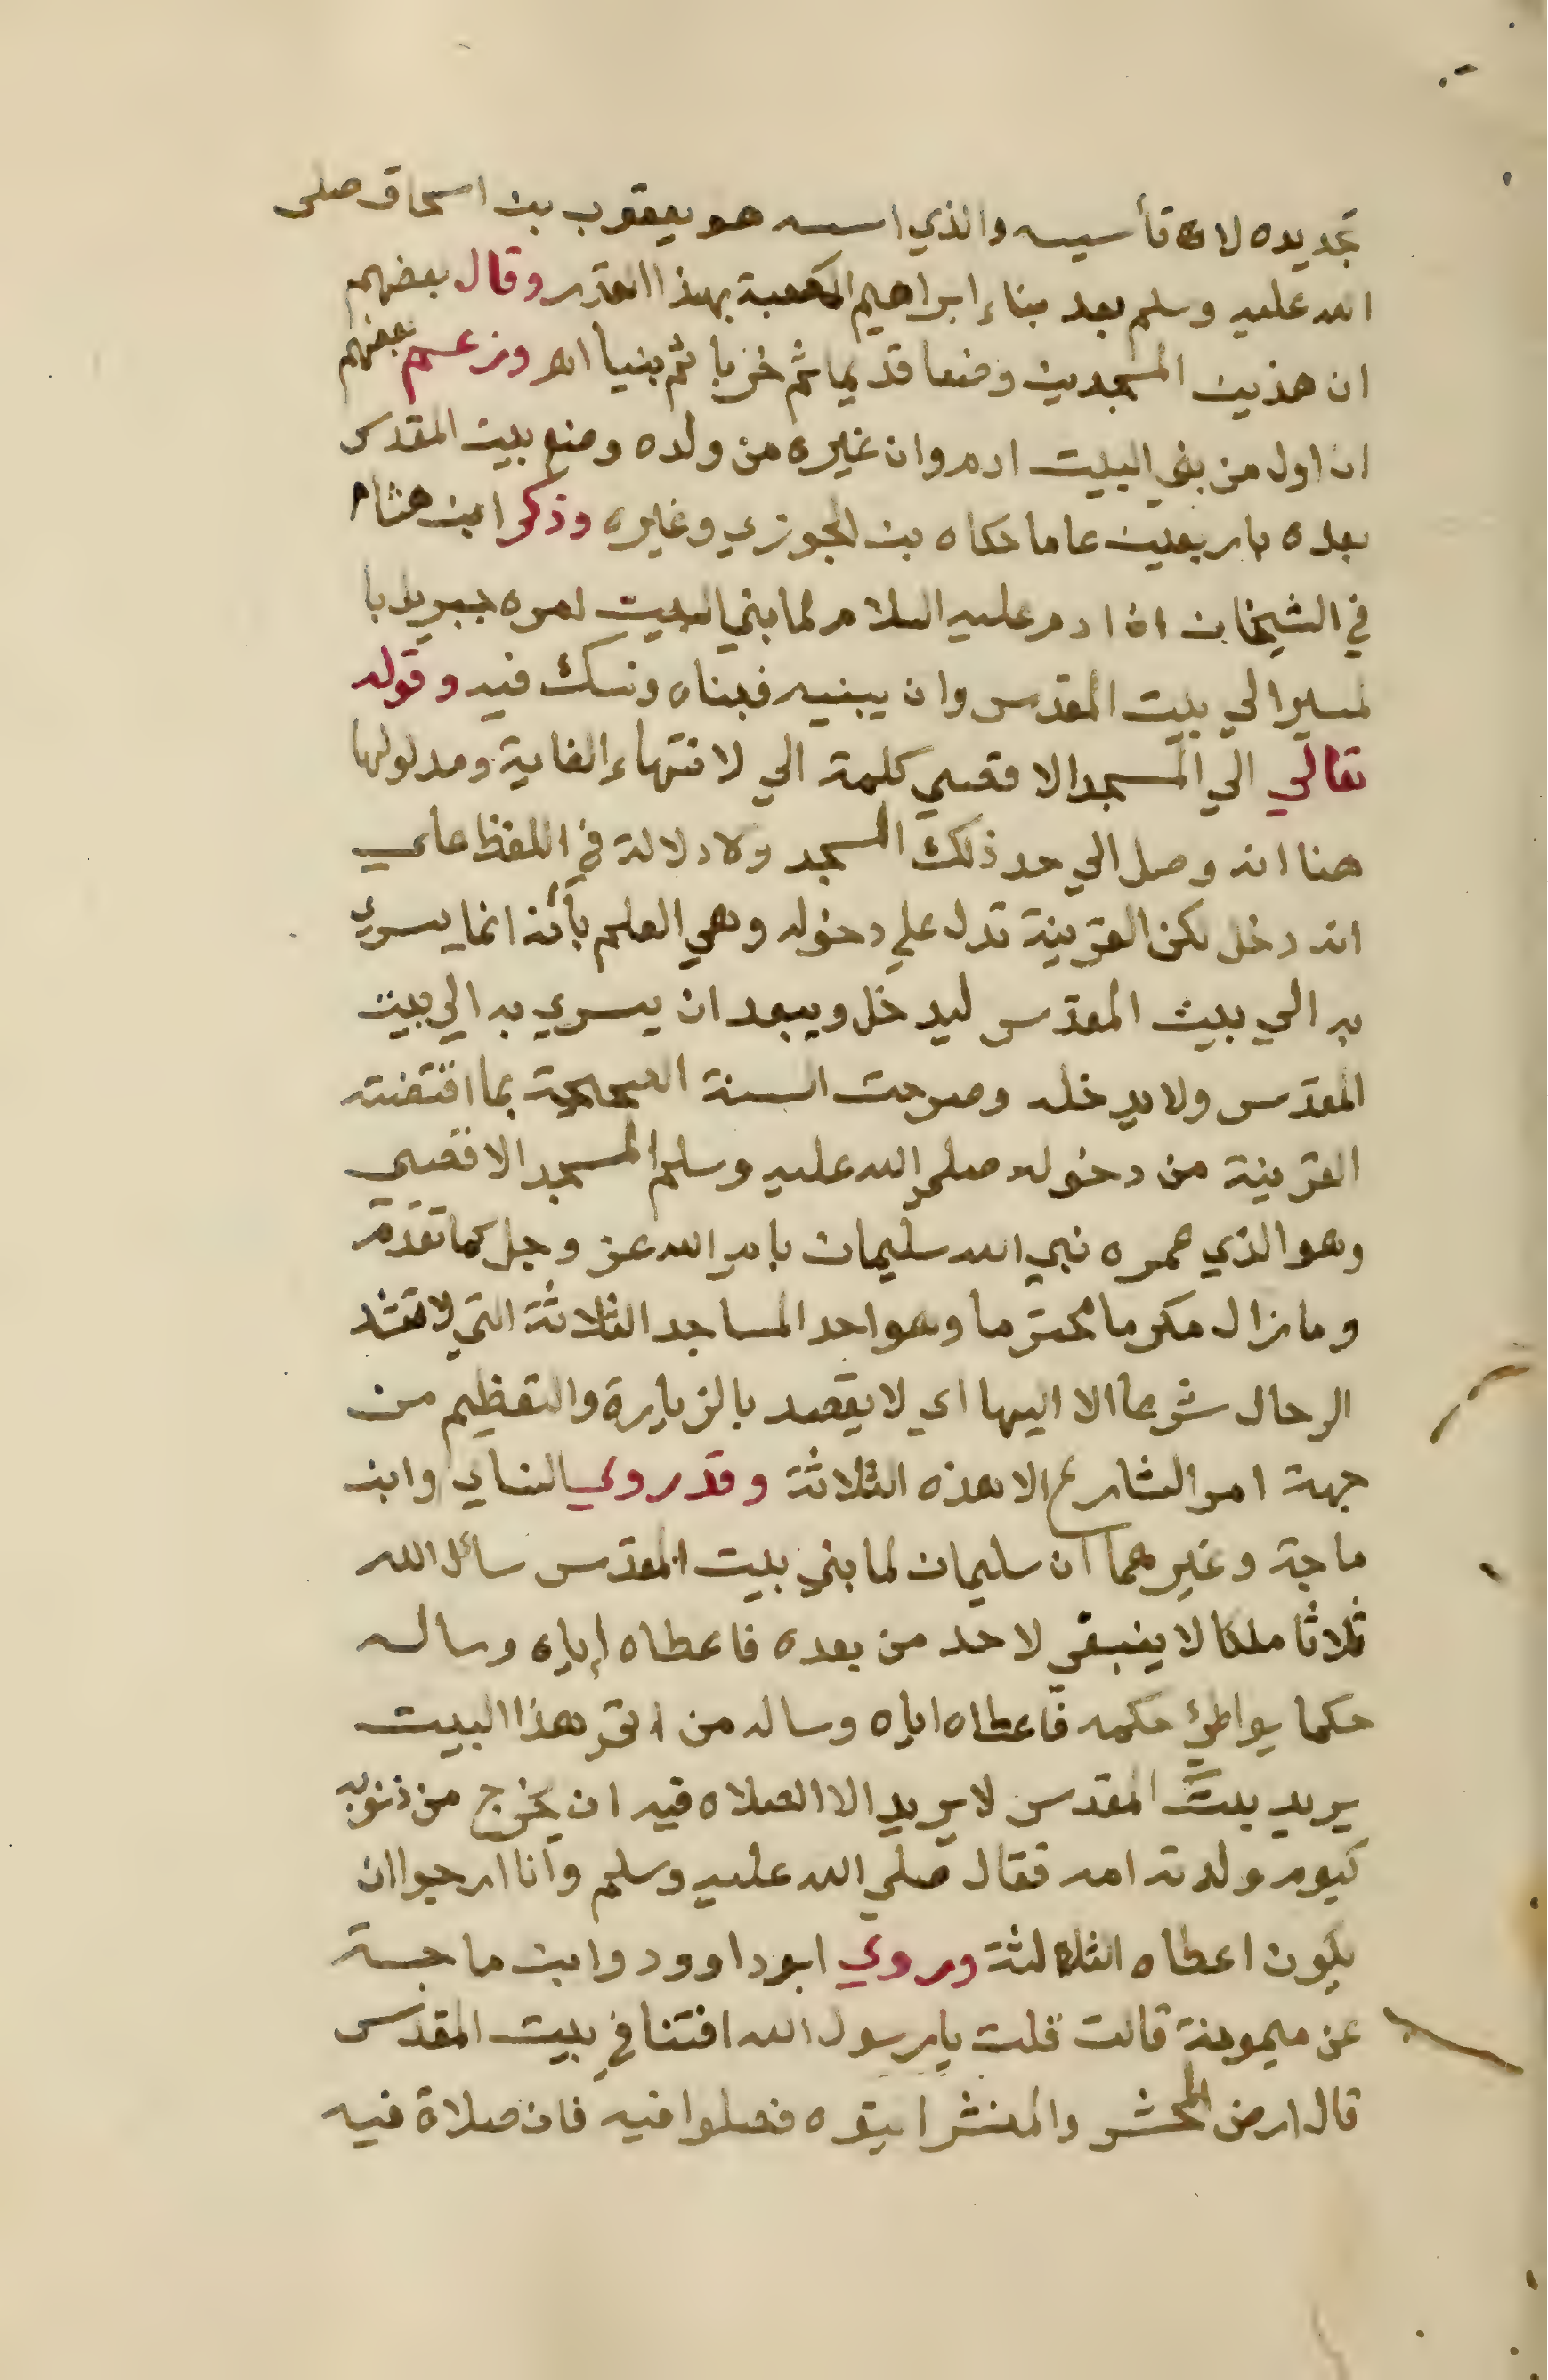 تجديده لا تأسيسه والذي اسسه هو يعقوب بن اسحاق صلى
الله عليه وسلم بعد بناء ابراهيم الكعبة بهذا القدر وقال بعضهم
ان هذين المسجدين وضعا قديما ثم خربا ثم بنيا اهـ وزعم بعضهم
ان اول من بني البيت ادم وان غيره من ولده وضع بيت المقدس
بعده باربعين عاما حكاه بن الجوزي وغيره وذكر ابن هشام
في التيجان ان ادم عليه السلام لما بني البيت امره جبريل با
لمسير الي بيت المقدس وان يبنيه فبناه ونسك فيه وقوله
تعالي الي المسجد الاقصي كلمة الي لانتهاء الغاية ومدلولها
هنا انه وصل الي حد ذلك المسجد ولا دلالة في اللفظ علي
انه دخل لكن القرينة تدل علي دخوله وهي العلم بأنه انما يسري
به الي بيت المقدس ليدخل ويبعد ان يسري به الي بيت
المقدس ولا يدخله وصرحت السنة الصحيحة بما اقتضته
القرينة من دخوله صلي الله عليه وسلم المسجد الاقصي
وهو الذي عمره نبي الله سليمان بامر الله عز وجل كما تقدم
وما زال مكرما محترما وهو احد المساجد الثلاثة التي لا تشد
الرحال شرعا الا اليها اي لا يقصد بالزيارة والتعظيم من
جهة امر الشارع الا هذه الثلاثة وقد روي النساي وابن
ماجة وغيرهما ان سليمان لما بني بيت المقدس سائل الله
ثلاثا ملكا لا ينبغي لاحد من بعده فاعطاه إياه وساله
حكما يواطئ حكمه فاعطاه اياه وساله من اتي هذا البيت
يريد بيت المقدس لا يريد الا الصلاه فيه ان يخرج من ذنوبه
كيوم ولدته امه فقال صلي الله عليه وسلم وأنا ارجوا ان
يكون اعطاه الثالثة وروي ابو داوود وابن ماجة
عن ميمونة قالت قلت يا رسول الله افتنا في بيت المقدس
قال ارض المحشر والمنشر ايتوه فصلوا فيه فان صلاة فيه